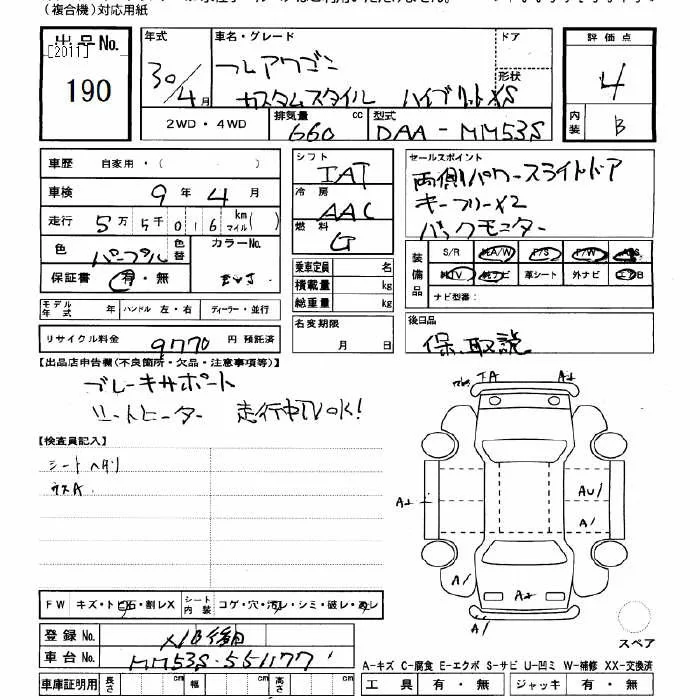 (複合機)対応用紙
出品No.
[2011]
190
年式
30/4月
車名・グレード
フレアワゴン
カスタムスタイル ハイブリットXS
ドア
形状
評価点
4
内装
B
2WD・4WD
排気量
660 cc
型式
DAA-MM53S
車歴 自家用・( )
車検 9年4月
走行 5万5千016 km マイル( )
色 パープル
色替
カラーNo.
保証書 有・無
モデル年式 年 ハンドル 左・右 ディーラー・並行
リサイクル料金 9770円 預託済
シフト
IAT
冷房
AAC
燃料
G
乗車定員 名
積載量 kg
総重量 kg
名変期限
月 日
セールスポイント
両側パワースライドドア
キーフリーX2
バックモニター
装備品
S/R A/W P/S P/W ABS
TV ナビ 革シート 外ナビ エアB
ナビ型番:
後日品
保、取説
【出品店申告欄(不良箇所・欠品・注意事項等)】
ブレーキサポート
シートヒーター 走行中TVOK!
【検査員記入】
シートヘリ
ガラスA
FW キズ・トビ石・割レX シート内装 コゲ・穴・汚レ・シミ・破レ・スレ
登録No.
車台No. MM53S-551177
車庫証明用 長さ cm 幅 cm 高さ cm
A1 A2
A2
AU1
A1
A1
A2
A1
スペア
A-キズ C-腐食 E-エクボ S-サビ U-凹ミ W-補修 XX-交換済
工具 有・無 ジャッキ 有・無